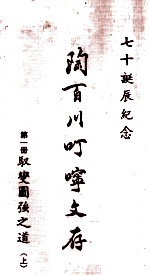 七十誕辰紀念
陶百川叮嚀文存
第一冊 馭變圖強之道(上)